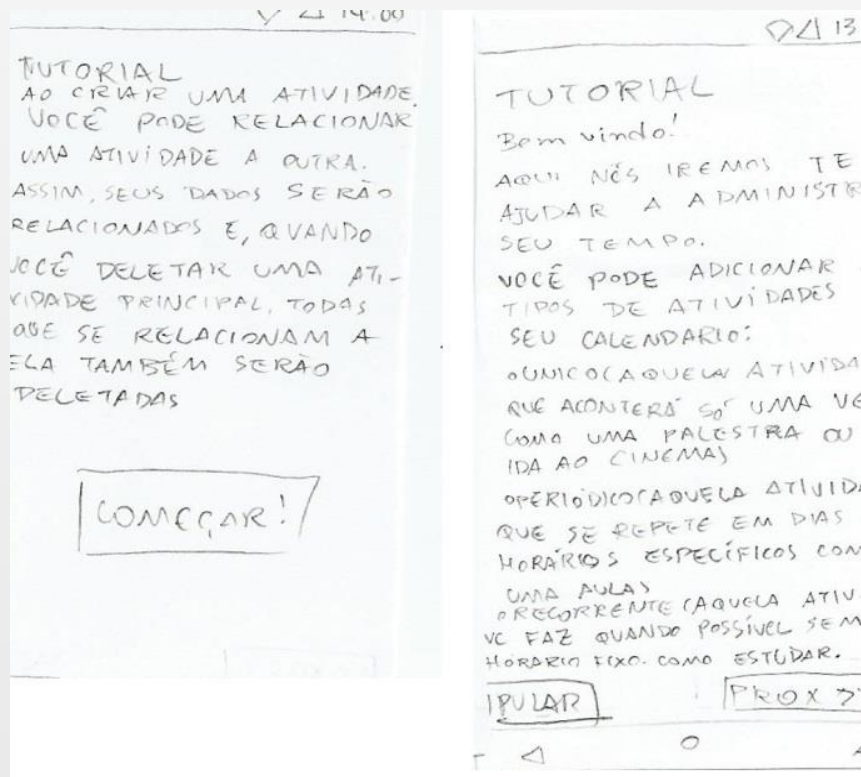 14:00
TUTORIAL
AO CRIAR UMA ATIVIDADE,
VOCÊ PODE RELACIONAR
UMA ATIVIDADE A OUTRA.
ASSIM, SEUS DADOS SERÃO
RELACIONADOS E, QUANDO
VOCÊ DELETAR UMA ATI-
VIDADE PRINCIPAL, TODAS
QUE SE RELACIONAM A
ELA TAMBÉM SERÃO
DELETADAS
COMEÇAR!
13
TUTORIAL
Bem vindo!
AQUI NÓS IREMOS TE
AJUDAR A ADMINISTR
SEU TEMPO.
VOCÊ PODE ADICIONAR
TIPOS DE ATIVIDADES
SEU CALENDARIO:
○UNICO(AQUELA ATIVIDA
QUE ACONTERÁ SÓ UMA VE
COMO UMA PALESTRA OU
IDA AO CINEMA)
○PERIÓDICO(AQUELA ATIVIDA
QUE SE REPETE EM DIAS
HORÁRIOS ESPECÍFICOS COM
UMA AULA)
○RECORRENTE (AQUELA ATIV
VC FAZ QUANDO POSSÍVEL SEM
HORARIO FIXO. COMO ESTUDAR.
IPULAR
PROX >